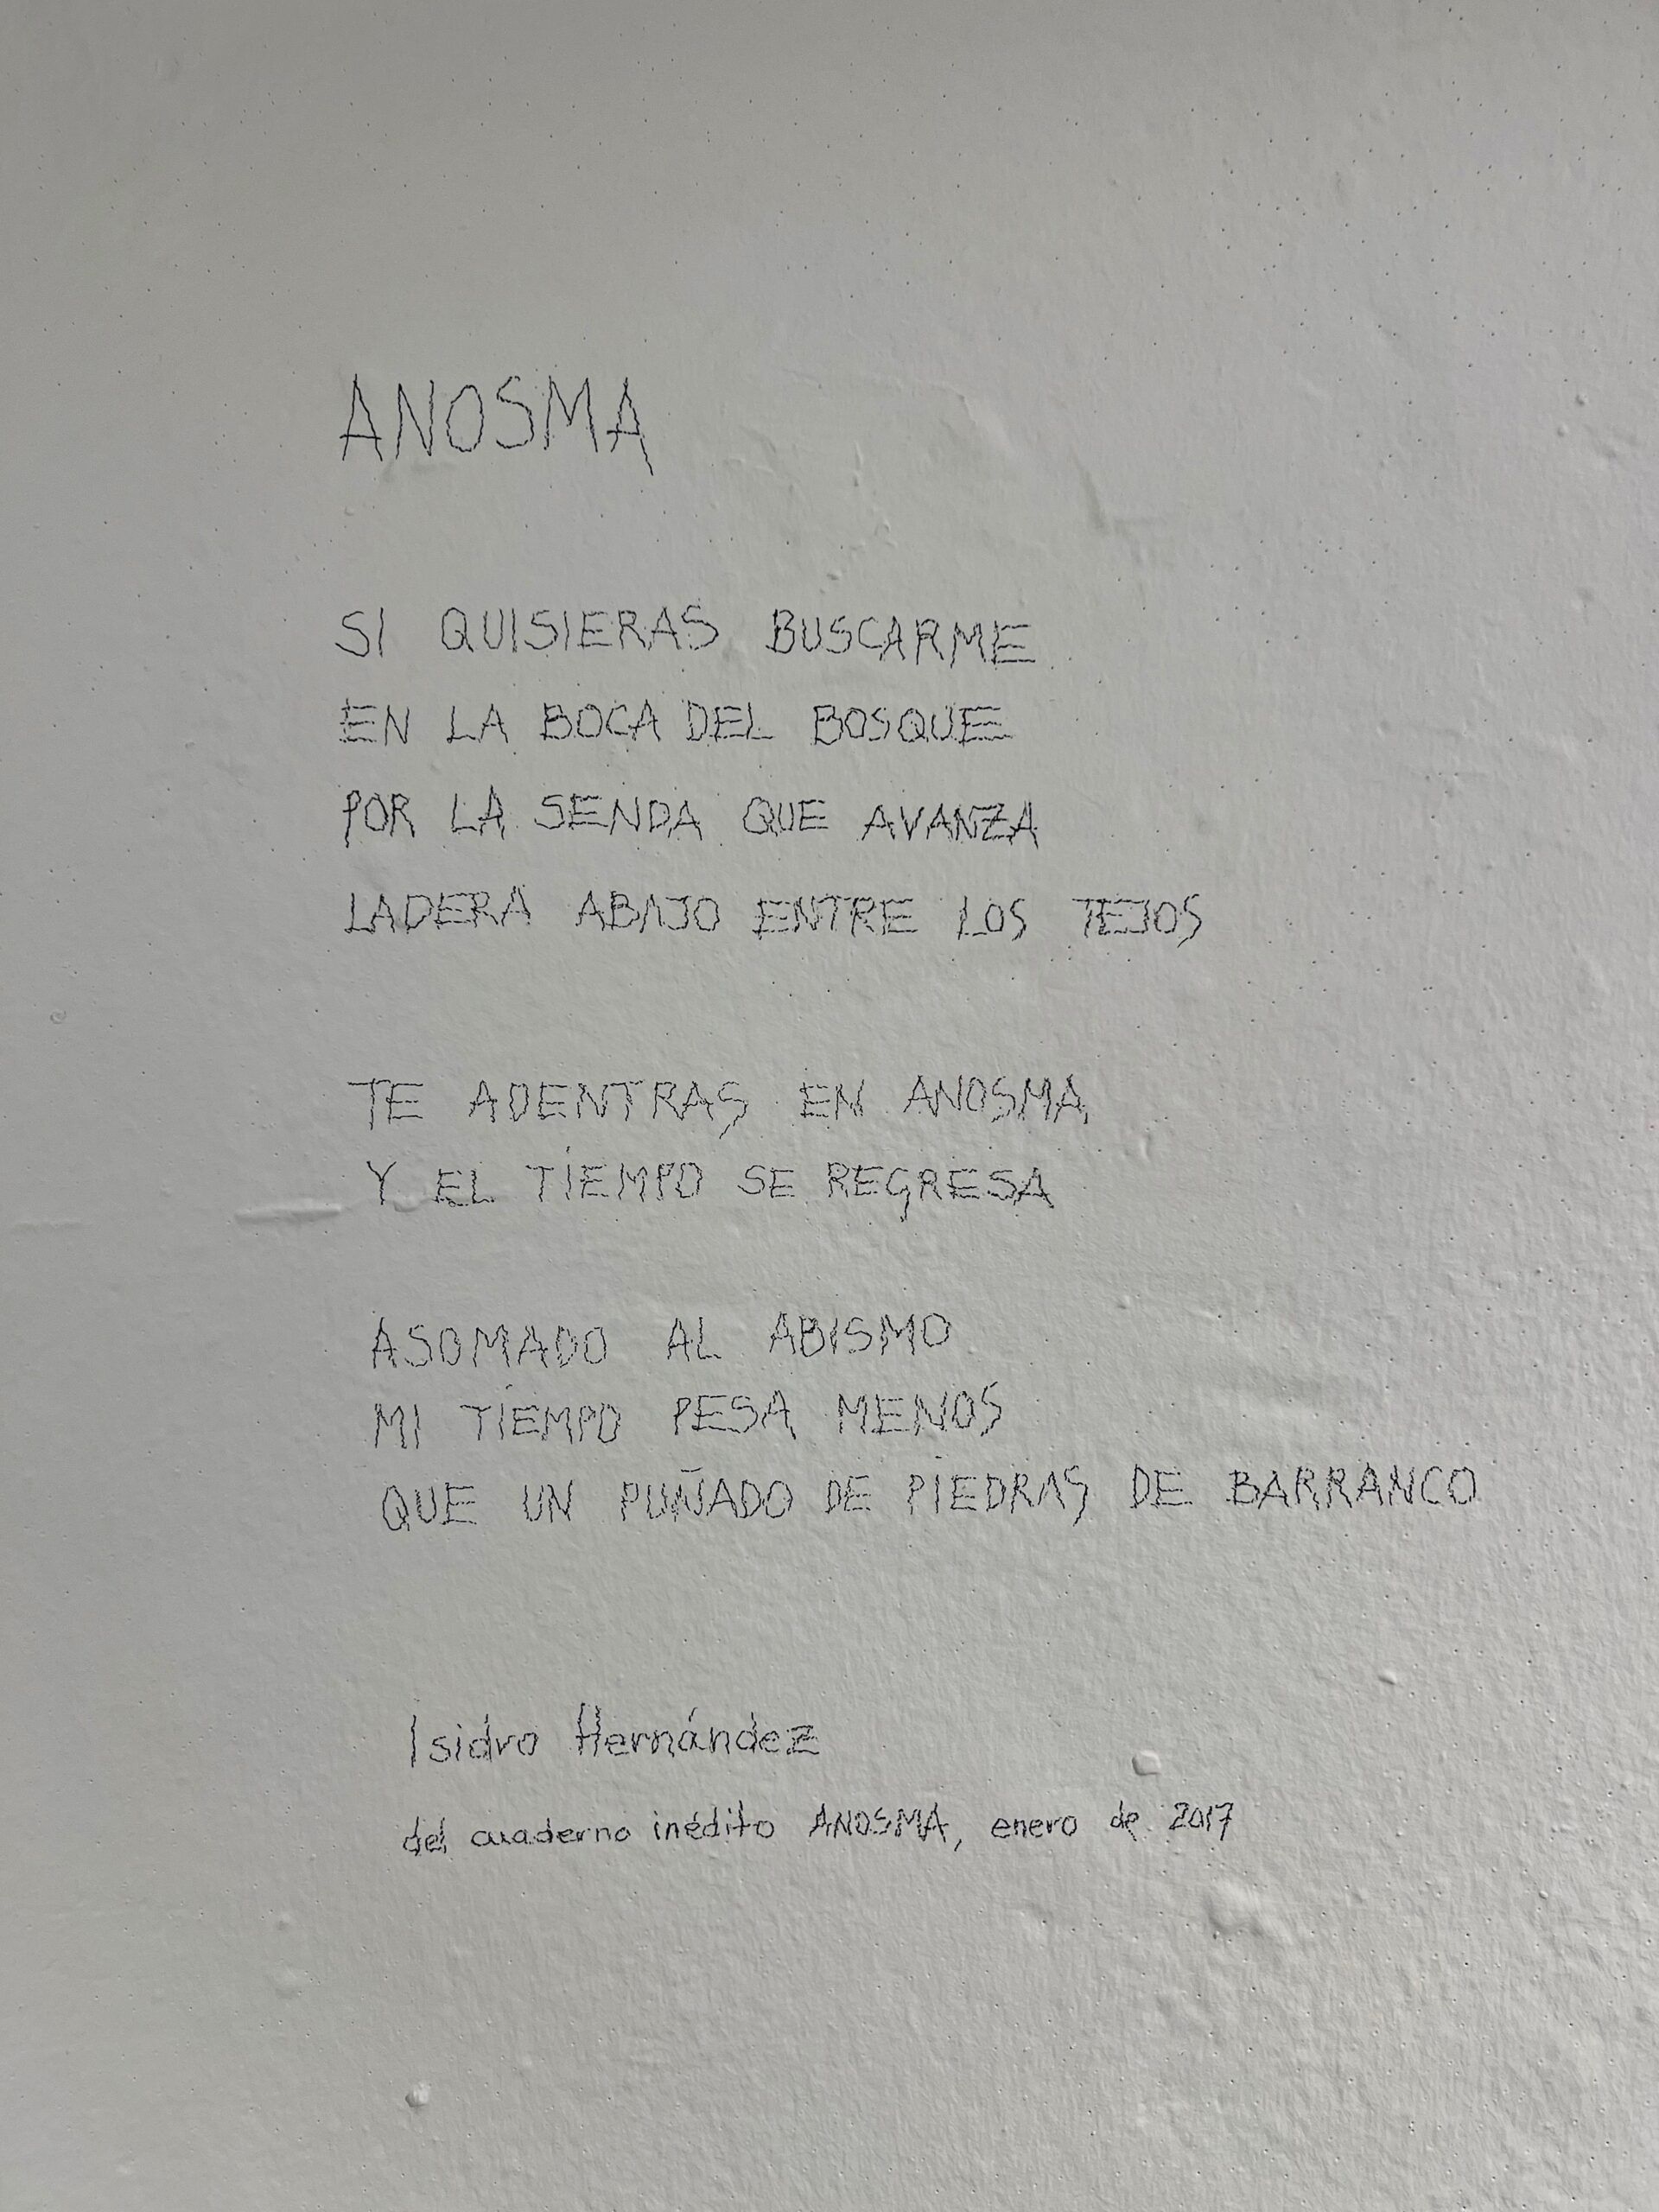 ANOSMA
SI QUISIERAS BUSCARME
EN LA BOCA DEL BOSQUE
POR LA SENDA QUE AVANZA
LADERA ABAJO ENTRE LOS TEJOS
TE ADENTRAS EN ANOSMA,
Y EL TIEMPO SE REGRESA
ASOMADO AL ABISMO
MI TIEMPO PESA MENOS
QUE UN PUÑADO DE PIEDRAS DE BARRANCO
Isidro Hernández
del cuaderno inédito ANOSMA, enero de 2017